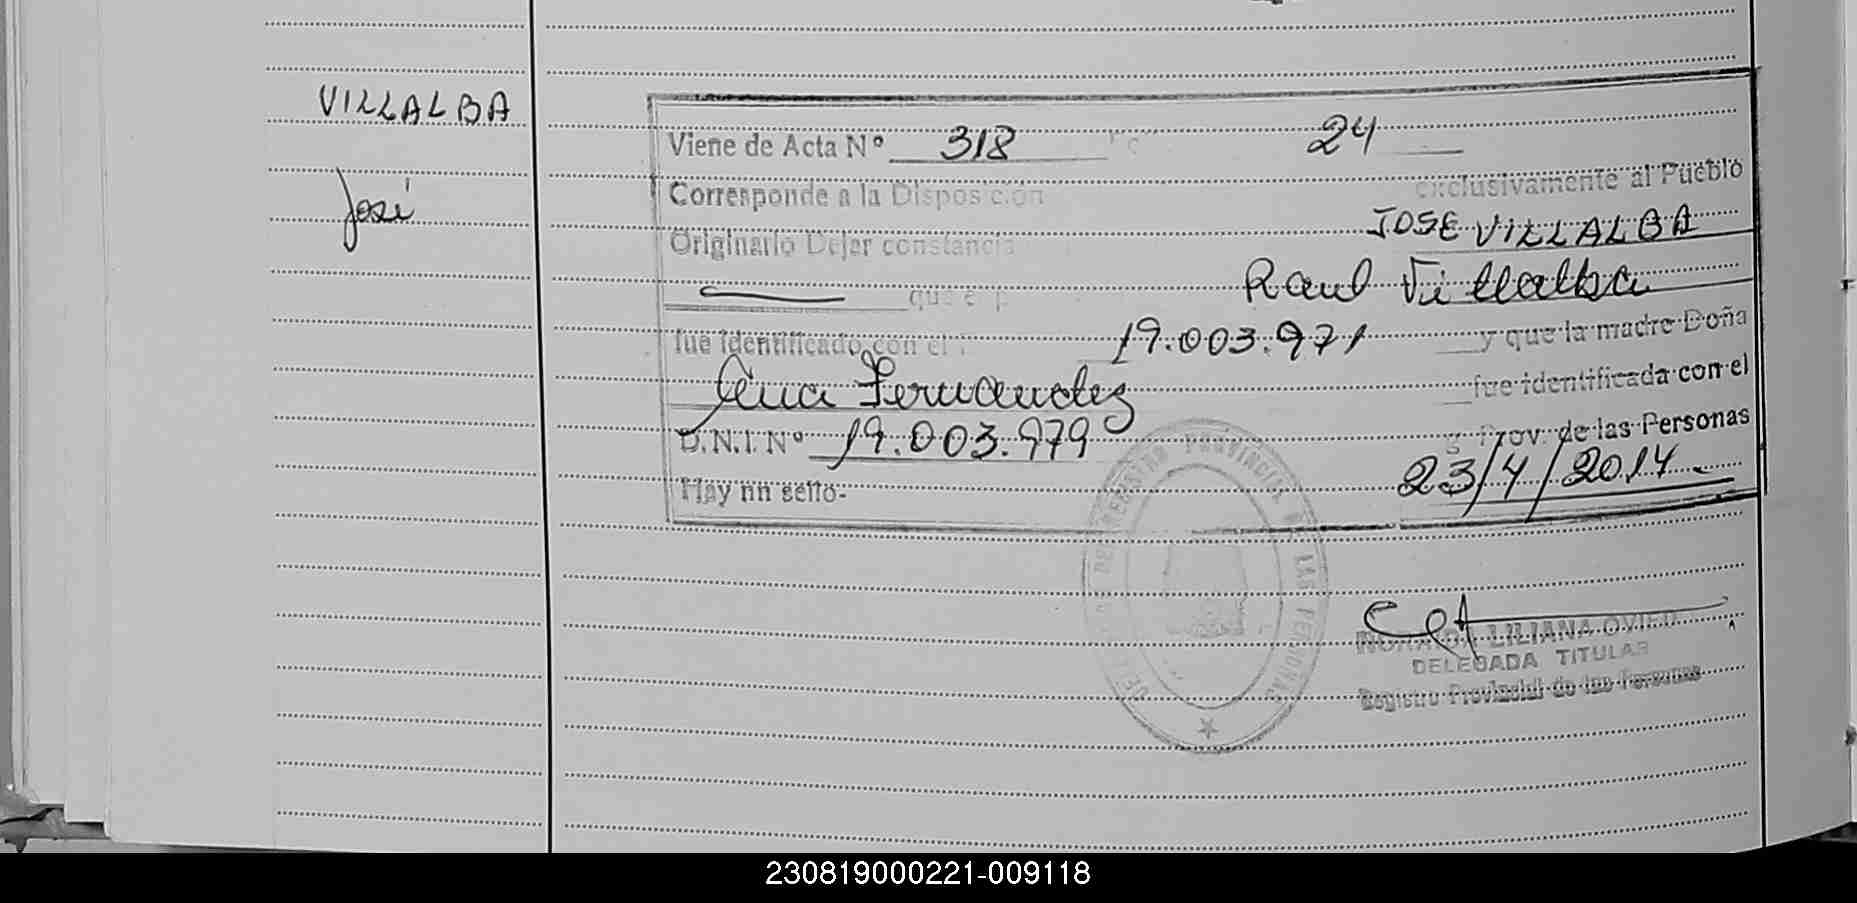 VILLALBA
José
Viene de Acta Nº 318 24
Corresponde a la Disposición exclusivamente al Pueblo
Originario Dejar constancia JOSE VILLALBA
que el Raul Villalba
fue identificado con el 19.003.971 y que la madre Doña
Ana Fernandez fue identificada con el
D.N.I. Nº 19.003.979 Prov. de las Personas
Hay un sello- 23/4/2014.-
REGISTRO PROVINCIAL DE LAS PERSONAS
LILIANA OVIEDO
DELEGADA TITULAR
Registro Provincial de las Personas
230819000221-009118